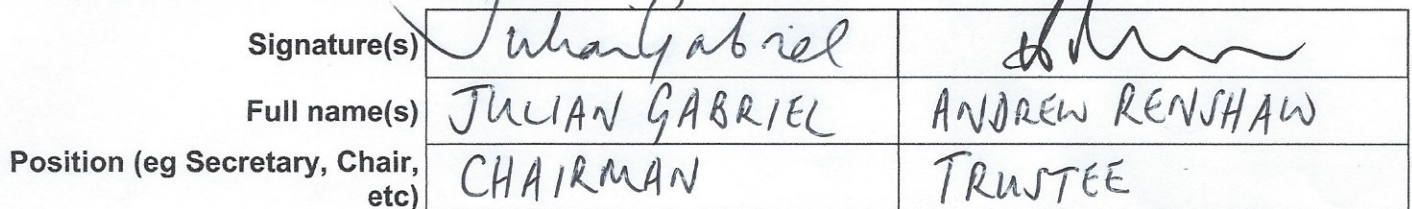 Signature(s) Julian Gabriel
Full name(s) JULIAN GABRIEL ANDREW RENSHAW
Position (eg Secretary, Chair, etc) CHAIRMAN TRUSTEE